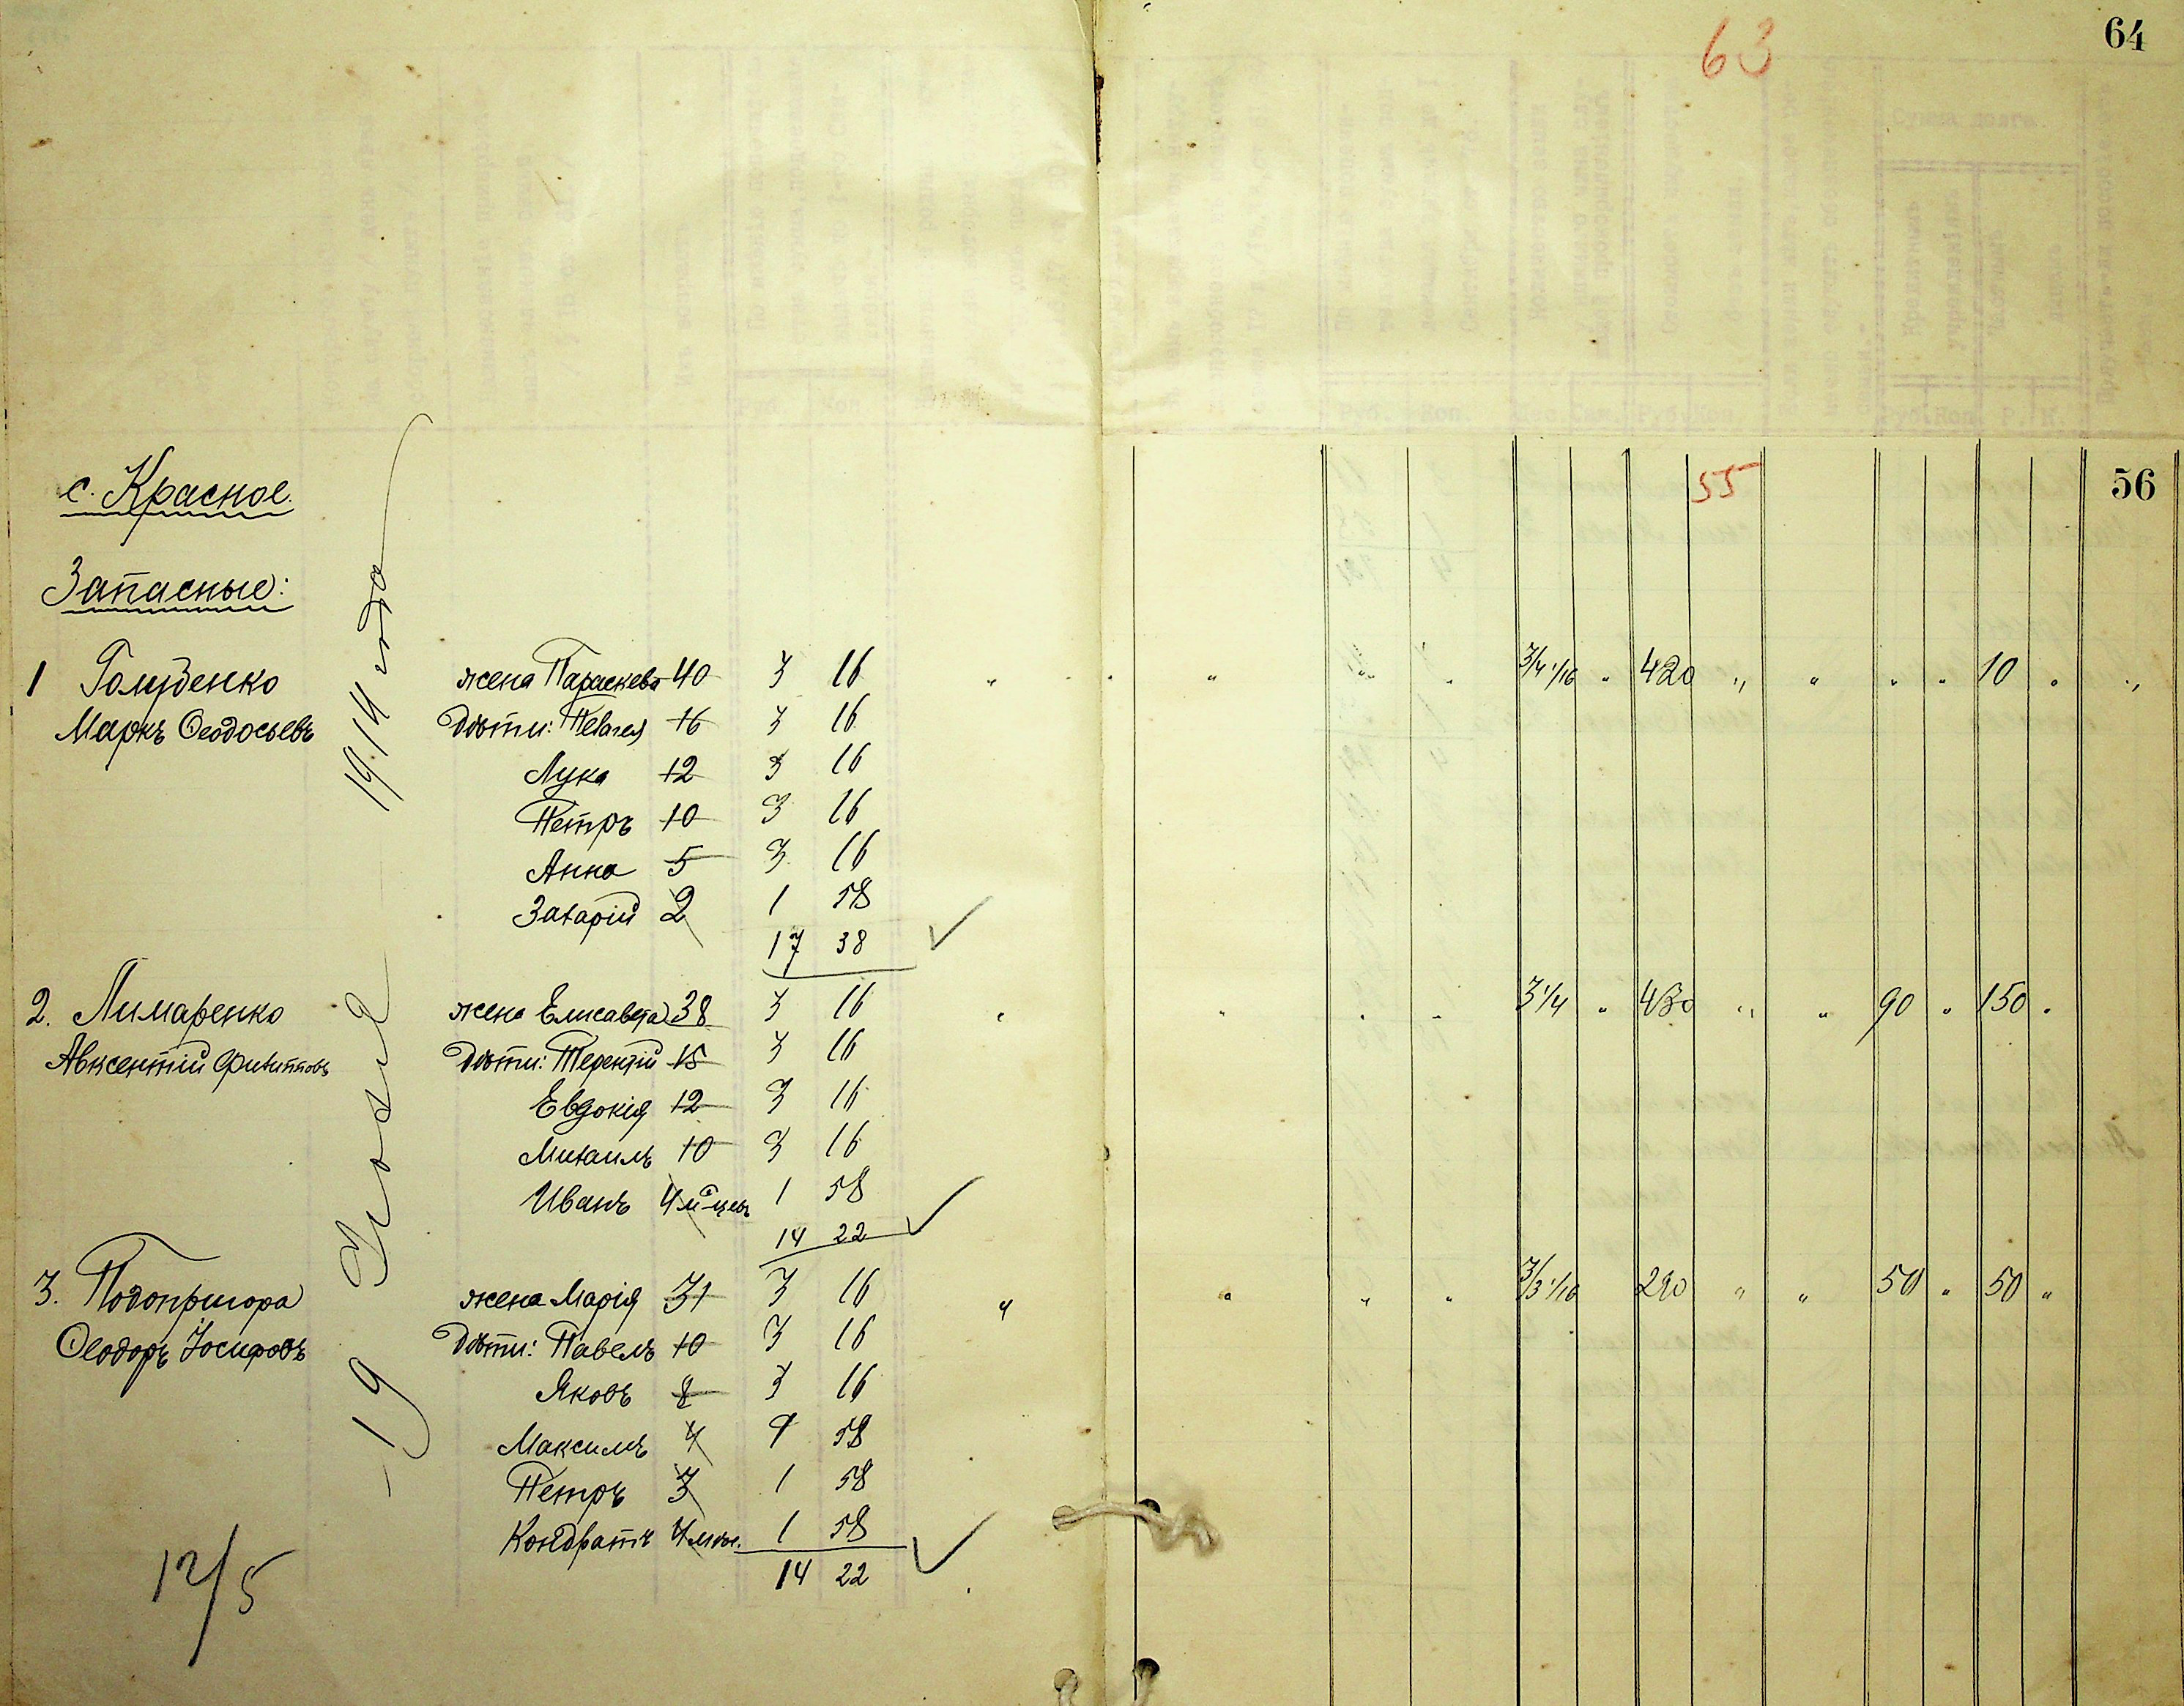 63
64
с. Красное.
55
56
Запасные:
19 Іюля 1914 года
1 Голубенко жена Параскева 40 3 16 " " " " 3/4 1/16 " 420 " " " " 10 " "
Маркъ Ѳеодосьевъ дѣти: Пелагея 16 3 16
Лука 12 3 16
Петръ 10 3 16
Анна 5 3 16
Захарій 2 1 58
17 38
2. Лимаренко жена Елисавета 38 3 16 " " " " 3 1/4 " 430 " " 90 " 150 "
Авксентій Филипповъ дѣти: Терентій 15 3 16
Евдокія 12 3 16
Михаилъ 10 3 16
Иванъ 4 м-цевъ 1 58
14 22
3. Подопригора жена Марія 31 3 16 " " " " 3/3 1/16 290 " " 50 " 50 "
Ѳеодоръ Іосифовъ дѣти: Павелъ 10 3 16
Яковъ 8 3 16
Максимъ 4 1 58
Петръ 3 1 58
Кондратъ 4 мѣс. 1 58
14 22
12/5